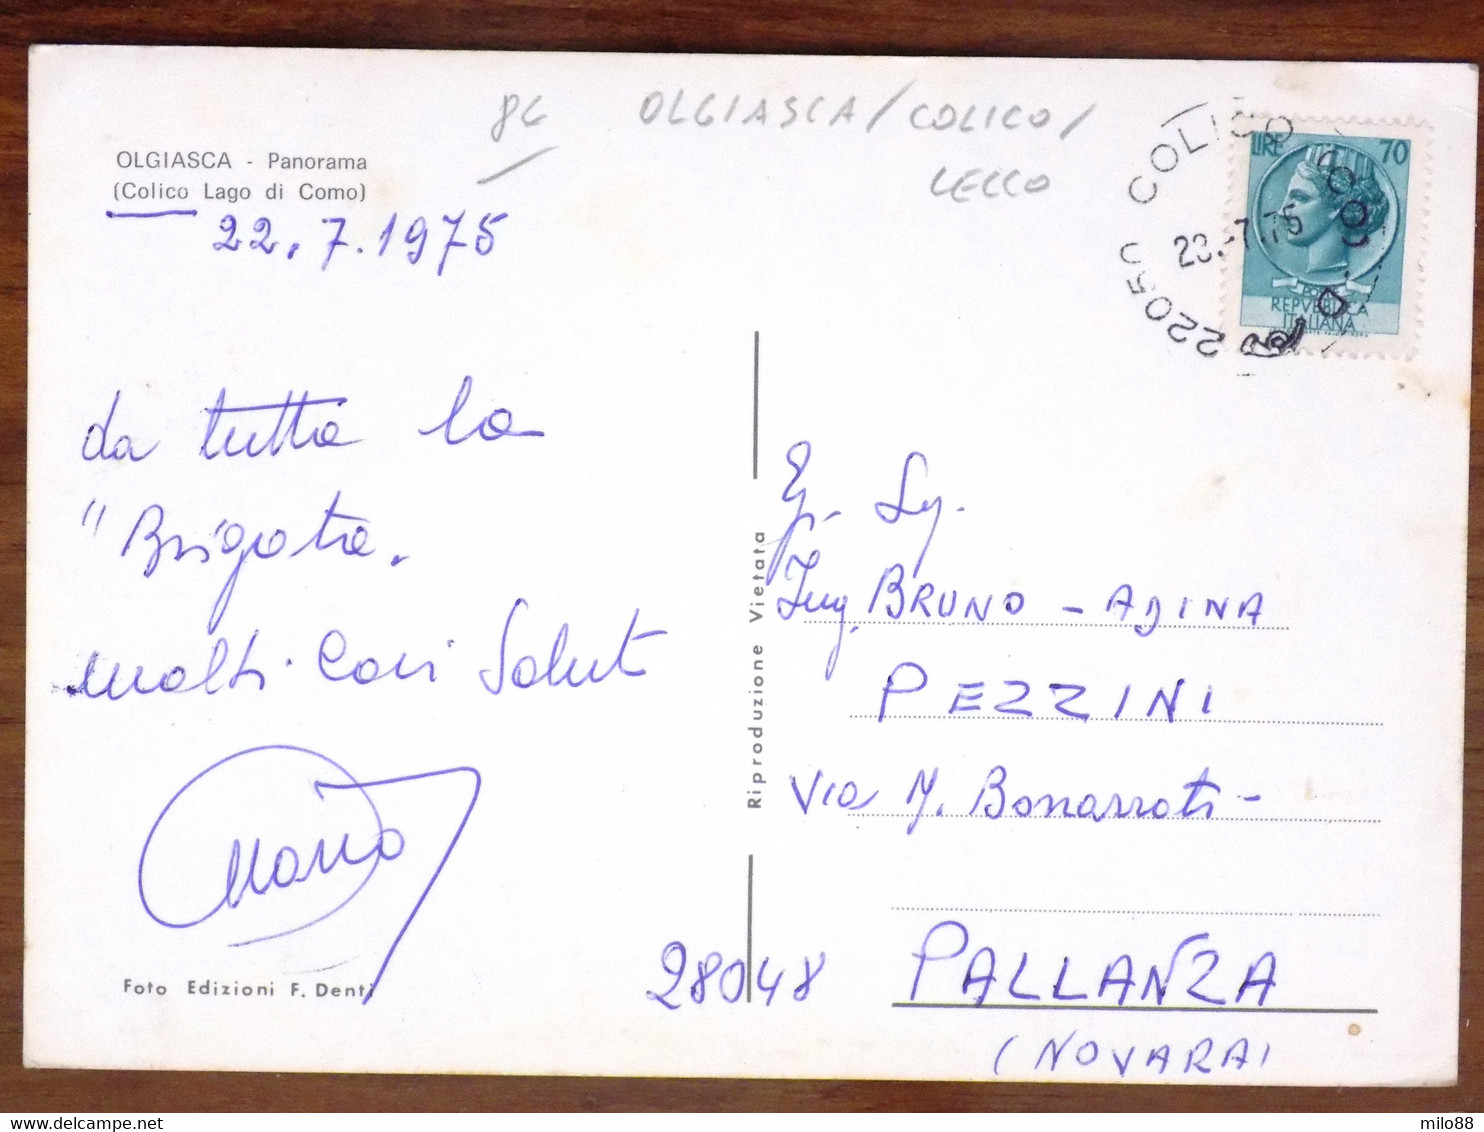 OLGIASCA - Panorama
(Colico Lago di Como)
22.7.1975
86
OLGIASCA/COLICO/
LECCO
22050 COLICO (COMO)
7.75
LIRE 70
REPVBBLICA
ITALIANA
da tutta la
"Brigata.
molti cari saluti
Mario
Foto Edizioni F. Denti
Riproduzione Vietata
Eg. Sig.
Ing. BRUNO - ADINA
PEZZINI
Via M. Bonarroti -
28048 PALLANZA
(NOVARA)
milo88